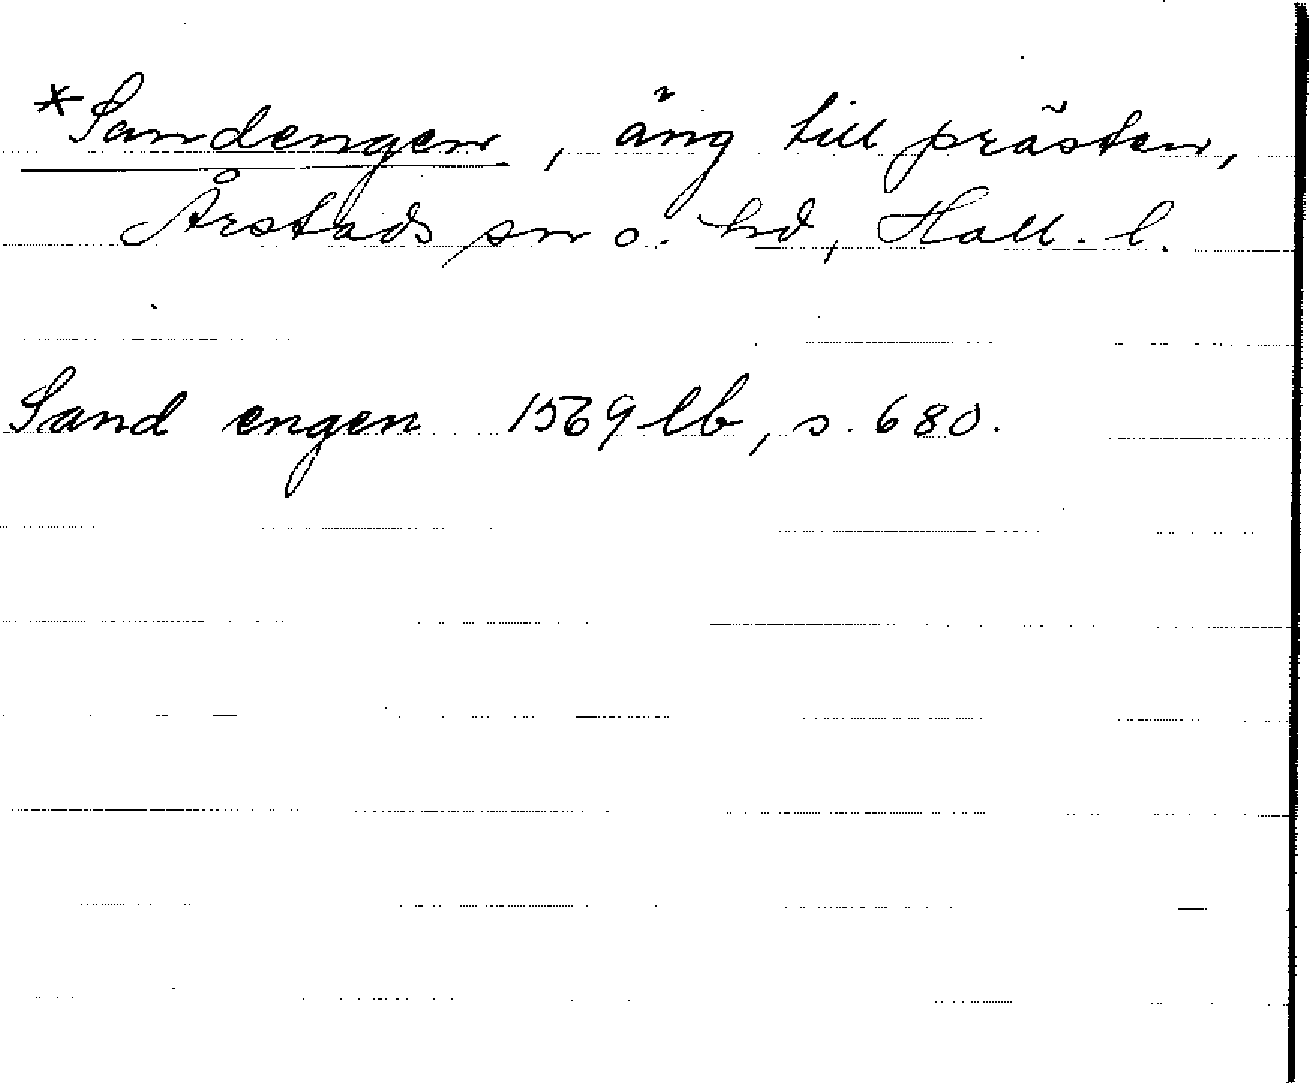 *Sandengen, äng till prästen,
Årstads sn o. hd, Hall. l.
Sand engen 1569 lb, s. 680.